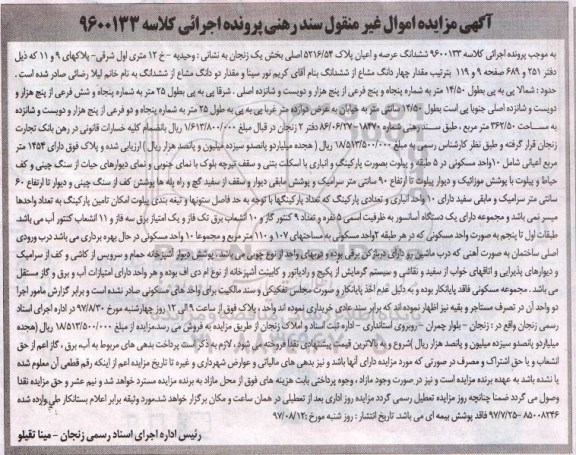 آگهی مزایده اموال غیر منقول سند رهنی پرونده اجرائی کلاسه ۹۶۰۰۱۳۳
به موجب پرونده اجرائی کلاسه ۹۶۰۰۱۳۳ ششدانگ عرصه و اعیان پلاک ۵۲۱۶/۵۴ اصلی بخش یک زنجان به نشانی : وحیدیه - خ ۱۲ متری اول شرقی- پلاکهای ۹ و ۱۱ که ذیل
دفتر ۲۵۱ و ۶۸۹ صفحه ۹ و ۱۱۹ بترتیب مقدار چهار دانگ مشاع از ششدانگ بنام آقای کریم نور سینا و مقدار دو دانگ مشاع از ششدانگ به نام خانم لیلا رضائی صادر شده است .
حدود : شمالا پی به پی بطول ۱۴/۵۰ متر به شماره پنجاه و دو فرعی از پنج هزار و دویست و شانزده اصلی . شرقا پی به پی بطول ۲۵ متر به شماره پنجاه و شش فرعی از پنج هزار و
دویست و شانزده اصلی جنوبا پی است بطول ۱۴/۵۰ سانتی متر به خیابان به عرض دوازده متر غربا پی به پی به طول ۲۵ متر به شماره پنجاه و دو فرعی از پنج هزار و دویست و شانزده
به مساحت ۳۶۲/۵۰ متر مربع ، طبق سند رهنی شماره ۱۸۳۷۰ - ۸۶/۰۶/۲۷ دفتر ۲ زنجان در قبال مبلغ ۱/۶۱۳/۸۰۰/۰۰۰ ریال بانضمام کلیه خسارات قانونی در رهن بانک تجارت
زنجان قرار گرفته و طبق نظر کارشناس رسمی به مبلغ ۱۸/۵۱۳/۵۰۰/۰۰۰ ریال ( هجده میلیاردو پانصدو سیزده میلیون و پانصد هزار ریال ) ارزیابی شده و پلاک فوق دارای ۱۴۵۴ متر
مربع اعیانی شامل ۱۰ واحد مسکونی در ۵ طبقه و پیلوت بصورت پارکینگ و انباری با اسکلت بتنی و سقف تیرچه بلوک با نمای جنوبی و نمای دیوارهای حیات از سنگ چینی و کف
حیاط و پیلوت با پوشش موزائیک و دیوار پیلوت تا ارتفاع ۹۰ سانتی متر سرامیک و پوشش مابقی دیوار و سقف از سفید گچ و راه پله ها پوشش کف از سنگ چینی و دیوار تا ارتفاع ۶۰
سانتی متر سرامیک و مابقی سفید دارای ۱۰ واحد انباری و تعدادی پارکینگ که تعداد پارکینگها با توجه به حد فاصل ستونها و تیغه بندی پیلوت امکان تامین پارکینگ به تعداد واحدها
میسر نمی باشد و مجموعه دارای یک دستگاه آسانسور به ظرفیت اسمی ۵ نفره و تعداد ۹ کنتور گاز و ۱۰ انشعاب برق تک فاز و یک امتیاز برق سه فاز و ۱۱ انشعاب کنتور آب می باشد.
طبقات اول تا پنجم به صورت واحد مسکونی که در هر طبقه ۲واحد مسکونی به مساحتهای ۱۰۷ و ۱۱۰ متر مربع و مجموعا ۱۰ واحد مسکونی در حال بهره برداری می باشد درب ورودی
اصلی ساختمان به صورت آهنی که درب ماشین رو دارای دربازکن برقی بوده و دربهای واحد از نوع چوبی می باشد ، پوشش دیوار آشپزخانه حمام و سرویس از کاشی و کف از سرامیک
و دیوارهای پذیرایی و اتاقهای خواب از سفید و نقاشی و سیستم گرمایش از پکیج و رادیاتور و کابینت آشپزخانه از نوع ام دی اف بوده و هر واحد دارای امتیازات آب و برق و گاز مستقل
می باشد . مجموعه مسکونی فاقد پایانکار بوده و به دلیل عدم اخذ پایانکار و صورت مجلس تفکیکی و سند مالکیت برای واحد های مسکونی صادر نشده است و برابر گزارش مامور اجرا
دو واحد آن در تصرف مستاجر و بقیه نیز اظهار نموده اند که برابر سند عادی خریداری نموده اند واحد ، پلاک فوق از ساعت ۹ الی ۱۲ روز چهارشنبه مورخ ۹۷/۸/۳۰ در اداره اجرای اسناد
رسمی زنجان واقع در : زنجان - بلوار چمران - روبروی استانداری - اداره ثبت اسناد و املاک زنجان از طریق مزایده به فروش می رسد.مزایده از مبلغ ۱۸/۵۱۳/۵۰۰/۰۰۰ ریال (هجده
میلیاردو پانصدو سیزده میلیون و پانصد هزار ریال )شروع و به بالاترین قیمت پیشنهادی نقدا فروخته می شود، لازم به ذکر است پرداخت بدهی های مربوط به آب، برق ، گاز اعم از حق
انشعاب و یا حق اشتراک و مصرف در صورتی که مورد مزایده دارای آنها باشد و نیز بدهی های مالیاتی و عوارض شهرداری و غیره تا تاریخ مزایده اعم از اینکه رقم قطعی آن معلوم شده
یا نشده باشد به عهده برنده مزایده است و نیز در صورت وجود مازاد ، وجوه پرداختی بابت هزینه های فوق از محل مازاد به برنده مزایده مسترد خواهد شد و نیم عشر و حق مزایده نقدا
وصول می گردد ضمنا چنانچه روز مزایده تعطیل رسمی گردد مزایده روز اداری بعد از تعطیلی در همان ساعت و مکان برگزار خواهد شدمورد وثیقه برابر اعلام بستانکار طی وارده شده
۸۵۰۰۸۲۴۶ - ۹۷/۷/۲۵ فاقد پوشش بیمه ای می باشد. تاریخ انتشار : روز شنبه مورخ :۹۷/۰۸/۱۲
رئیس اداره اجرای اسناد رسمی زنجان - مینا تقیلو